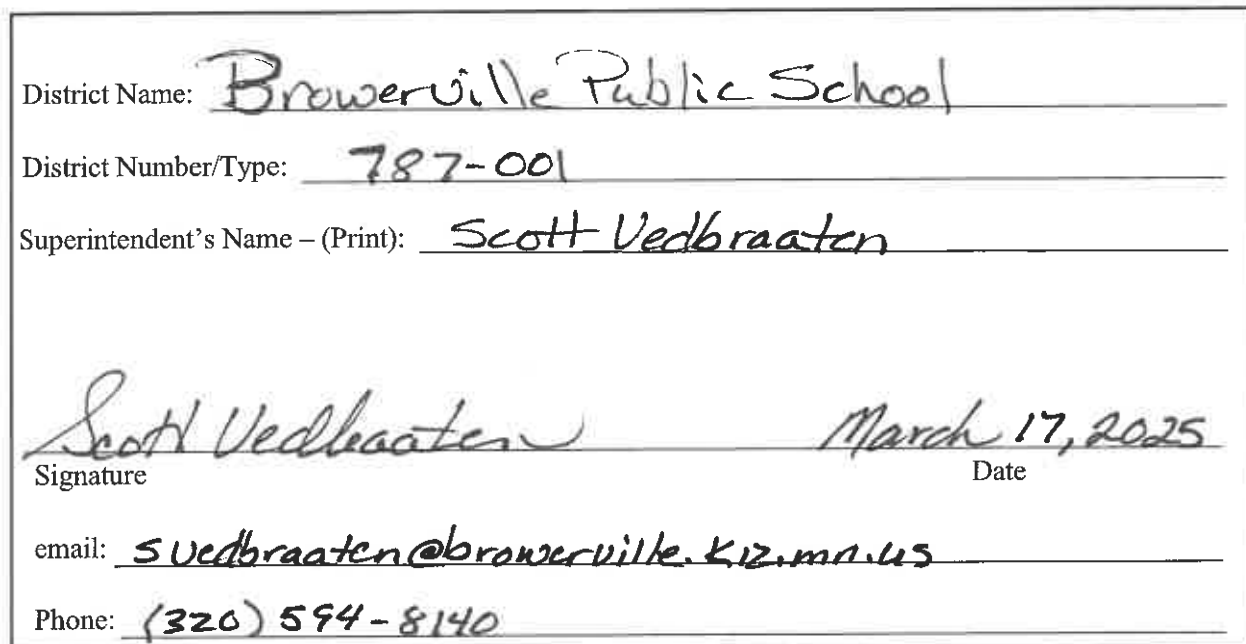 District Name: Browerville Public School
District Number/Type: 787-001
Superintendent's Name – (Print): Scott Vedbraaten
Scott Vedbraaten March 17, 2025
Signature Date
email: svedbraaten@browerville.k12.mn.us
Phone: (320) 594-8140